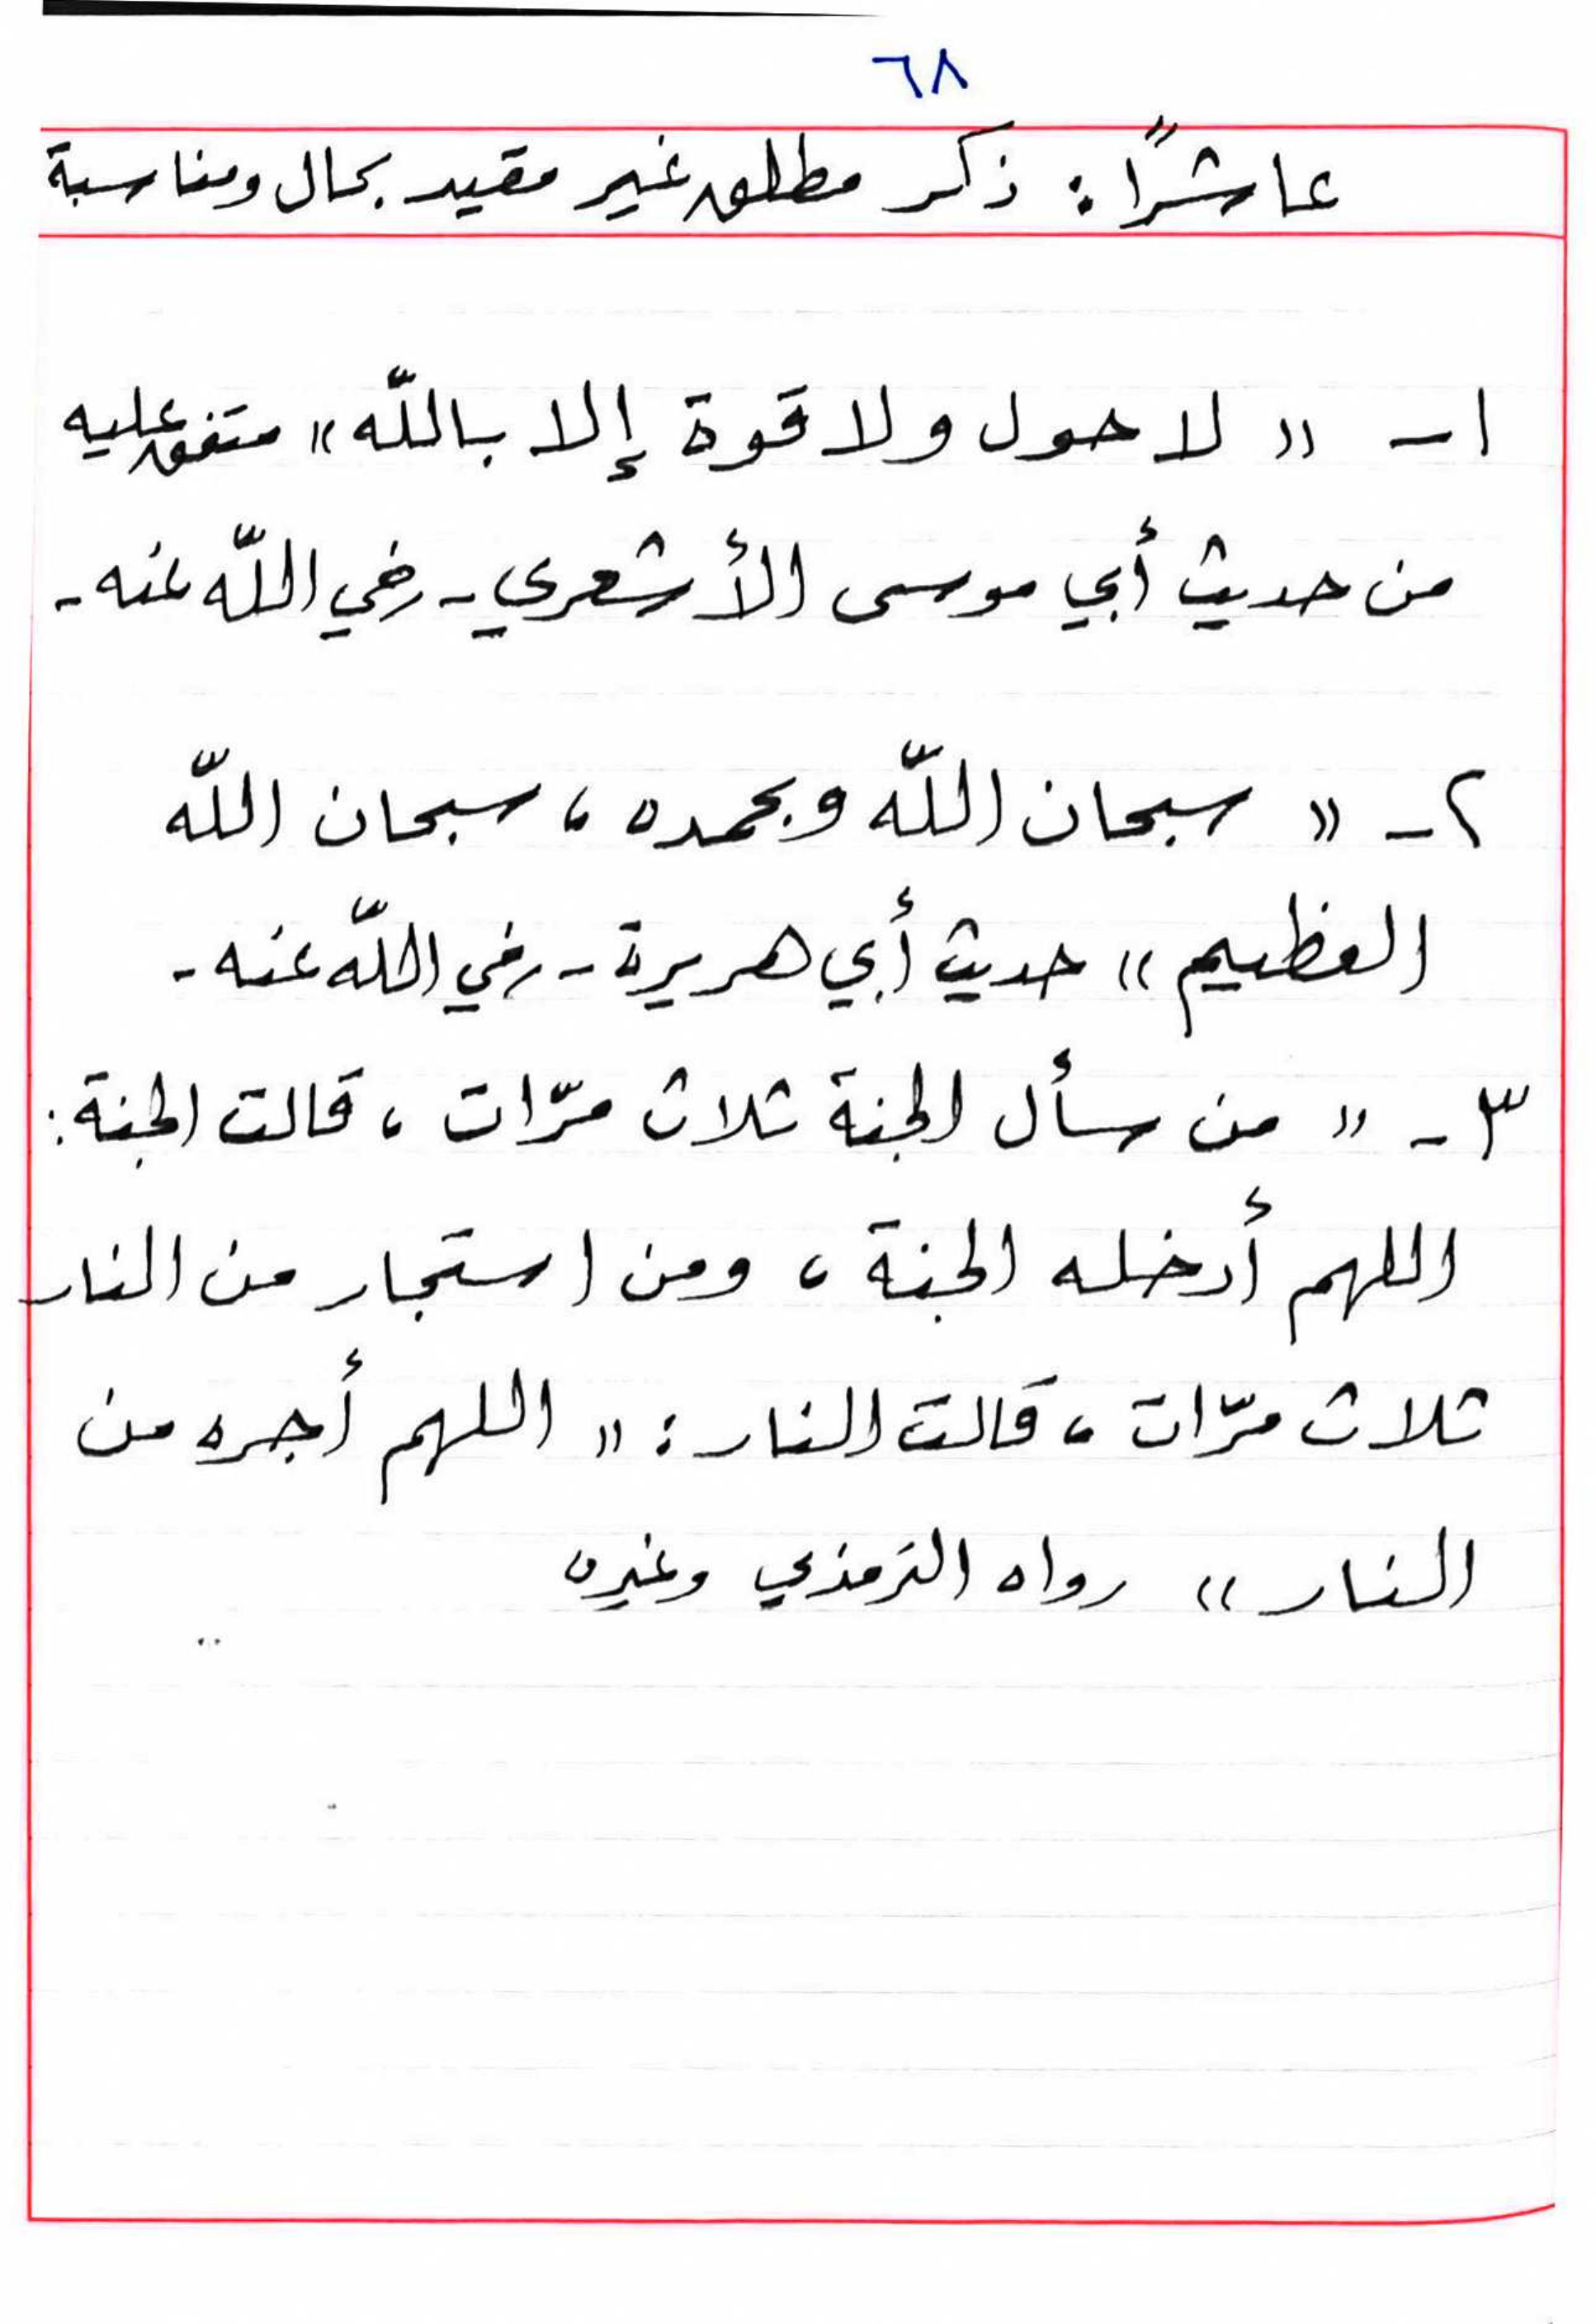 ٦٨
عاشرًا: ذكر مطلق غير مقيد بحال ومناسبة
١- «لا حول ولا قوة إلا باللّه» متفق عليه
من حديث أبي موسى الأشعري - رضي اللّه عنه -
٢- «سبحان اللّه وبحمده، سبحان اللّه
العظيم» حديث أبي هريرة - رضي اللّه عنه -
٣- «من سأل الجنة ثلاث مرّات، قالت الجنة:
اللهم أدخله الجنة، ومن استجار من النار
ثلاث مرّات، قالت النار: «اللهم أجره من
النار» رواه الترمذي وغيره